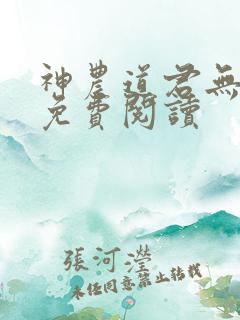 神農道君無
免費閱讀
張河瀅
未經同意禁止轉載